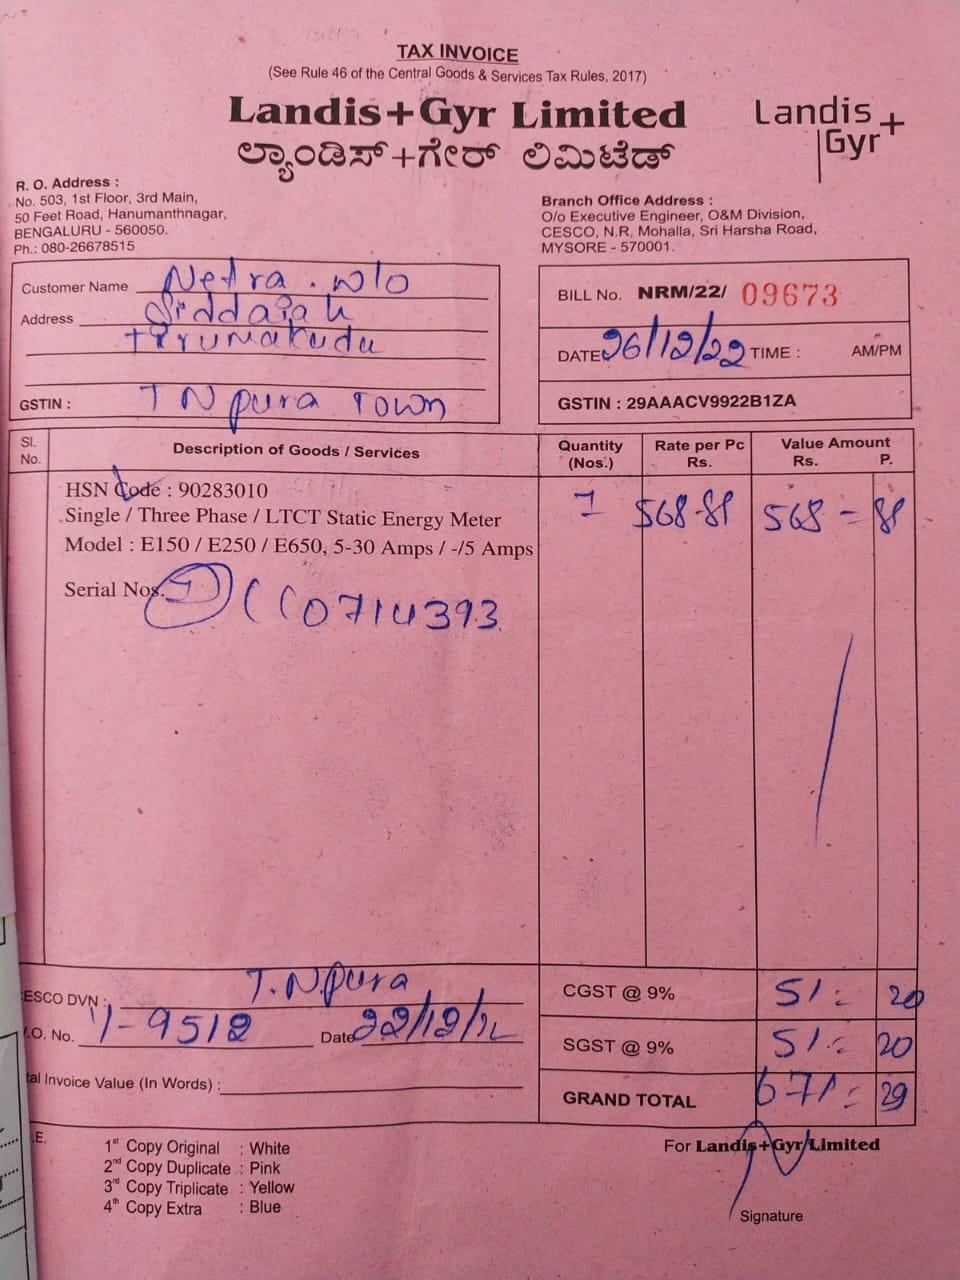 TAX INVOICE
(See Rule 46 of the Central Goods & Services Tax Rules, 2017)
Landis+Gyr Limited
Landis+
Gyr
ಲ್ಯಾಂಡಿಸ್+ಗೇರ್ ಲಿಮಿಟೆಡ್
R. O. Address :
No. 503, 1st Floor, 3rd Main,
50 Feet Road, Hanumanthnagar,
BENGALURU - 560050.
Ph.: 080-26678515
Branch Office Address :
O/o Executive Engineer, O&M Division,
CESCO, N.R. Mohalla, Sri Harsha Road,
MYSORE - 570001.
Customer Name Netra . w/o
Address Siddaiah
Tirumakudu
GSTIN : T N pura Town
BILL No. NRM/22/ 09673
DATE 26/12/22 TIME : AM/PM
GSTIN : 29AAACV9922B1ZA
Sl. No. Description of Goods / Services Quantity (Nos.) Rate per Pc Rs. Value Amount Rs. P.
HSN Code : 90283010 1 568-81 568 = 81
Single / Three Phase / LTCT Static Energy Meter
Model : E150 / E250 / E650, 5-30 Amps / -/5 Amps
Serial Nos. 0714393
ESCO DVN : T.N.pura
CGST @ 9% 51 = 20
.O. No. 9512 Date 22/12/22
SGST @ 9% 51 = 20
tal Invoice Value (In Words) :
GRAND TOTAL 671 = 29
.E.
1st Copy Original : White
2nd Copy Duplicate : Pink
3rd Copy Triplicate : Yellow
4th Copy Extra : Blue
For Landis+Gyr Limited
Signature